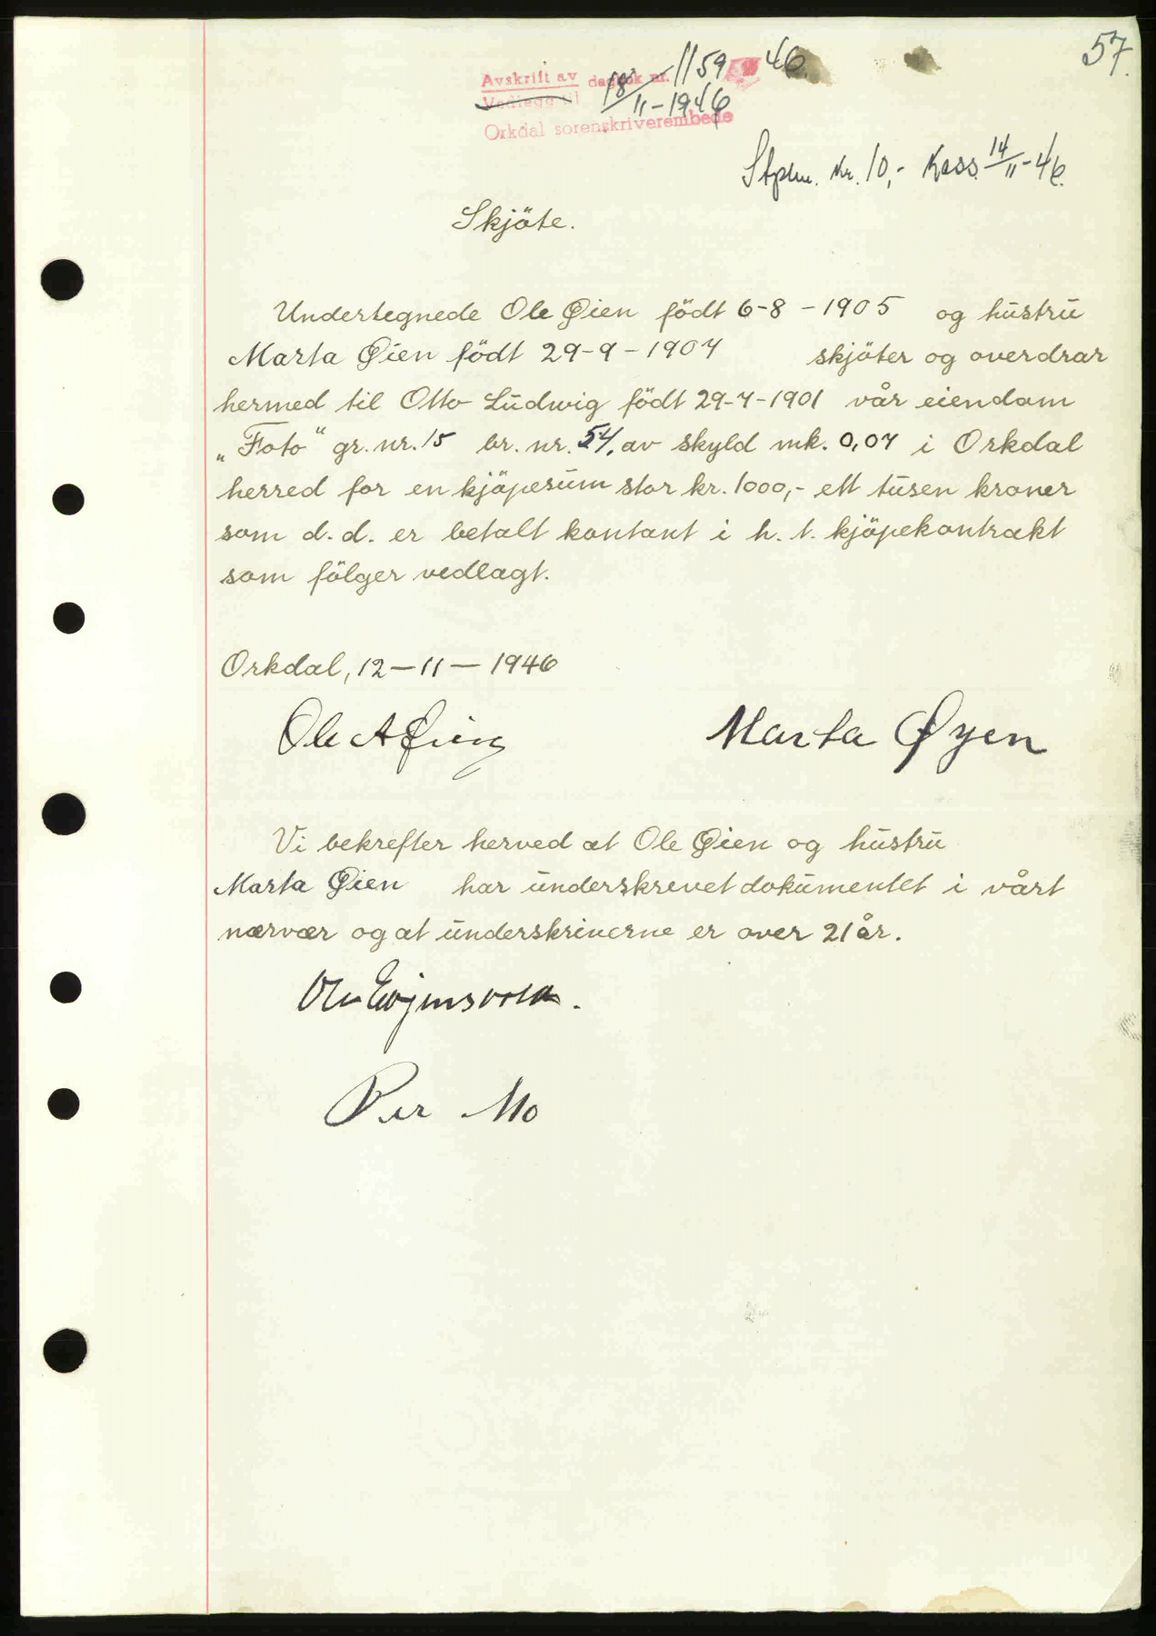 57.
Avskrift av dagbok nr. 1159 46
Vedlegg til 18/11-1946
Orkdal sorenskriverembede
Stplm. kr. 10,- Kass. 14/11-46.
Skjöte.
Undertegnede Ole Øien födt 6-8-1905 og hustru
Marta Øien födt 29-9-1907 skjöter og overdrar
hermed til Otto Ludwig födt 29-7-1901 vår eiendom
„Foto“ gr. nr. 15 br. nr. 54, av skyld mk. 0,07 i Orkdal
herred for en kjöpesum stor kr. 1000,- ett tusen kroner
som d. d. er betalt kontant i h. t. kjöpekontrakt
som fölger vedlagt.
Orkdal, 12-11-1946
Ole A Øien Marta Øyen
Vi bekrefter herved at Ole Øien og hustru
Marta Øien har underskrevet dokumentet i vårt
nærvær og at underskriverne er over 21 år.
Per Mo